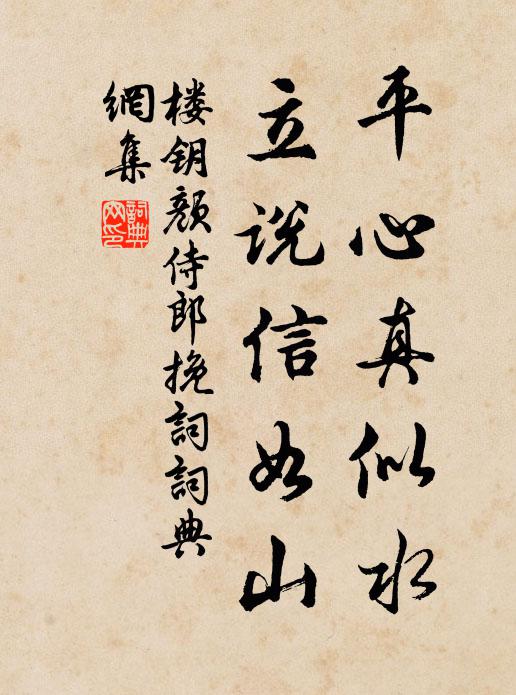 平心真似水
立说信如山
楼钥颜侍郎挽詞詞典
網集
詞典網印